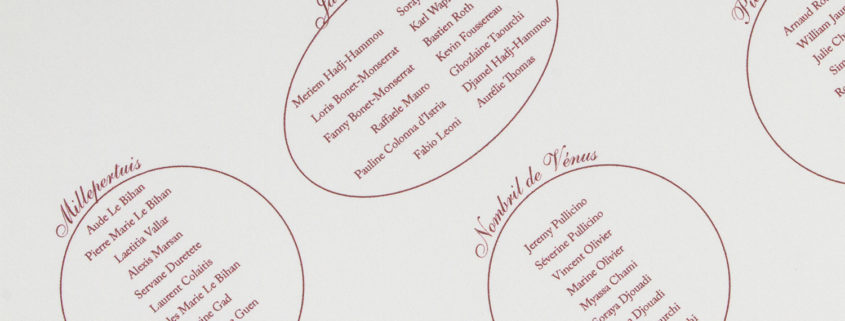 Meriem Hadj-Hammou
Loris Bonet-Monserrat
Fanny Bonet-Monserrat
Raffaele Mauro
Pauline Colonna d'Istria
Fabio Leoni
Bastien Roth
Kevin Foussereau
Ghozlaine Taourchi
Djamel Hadj-Hammou
Aurélie Thomas
Karl
Millepertuis
Aude Le Bihan
Pierre Marie Le Bihan
Laetitia Vallar
Alexis Marsan
Servane Duretete
Laurent Colaitis
Marie Le Bihan
Gad
Guen
Nombril de Vénus
Jeremy Pullicino
Séverine Pullicino
Vincent Olivier
Marine Olivier
Myassa Chami
Soraya Djouadi
Djouadi
Arnaud
William
Julie